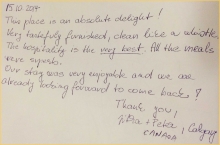 15.10.2019
This place is an absolute delight!
Very tastefully furnished, clean like a whistle.
The hospitality is the very best. All the meals
were superb.
Our stay was very enjoyable and we are
already looking forward to come back!
Thank you,
Peter, Calgary
CANADA